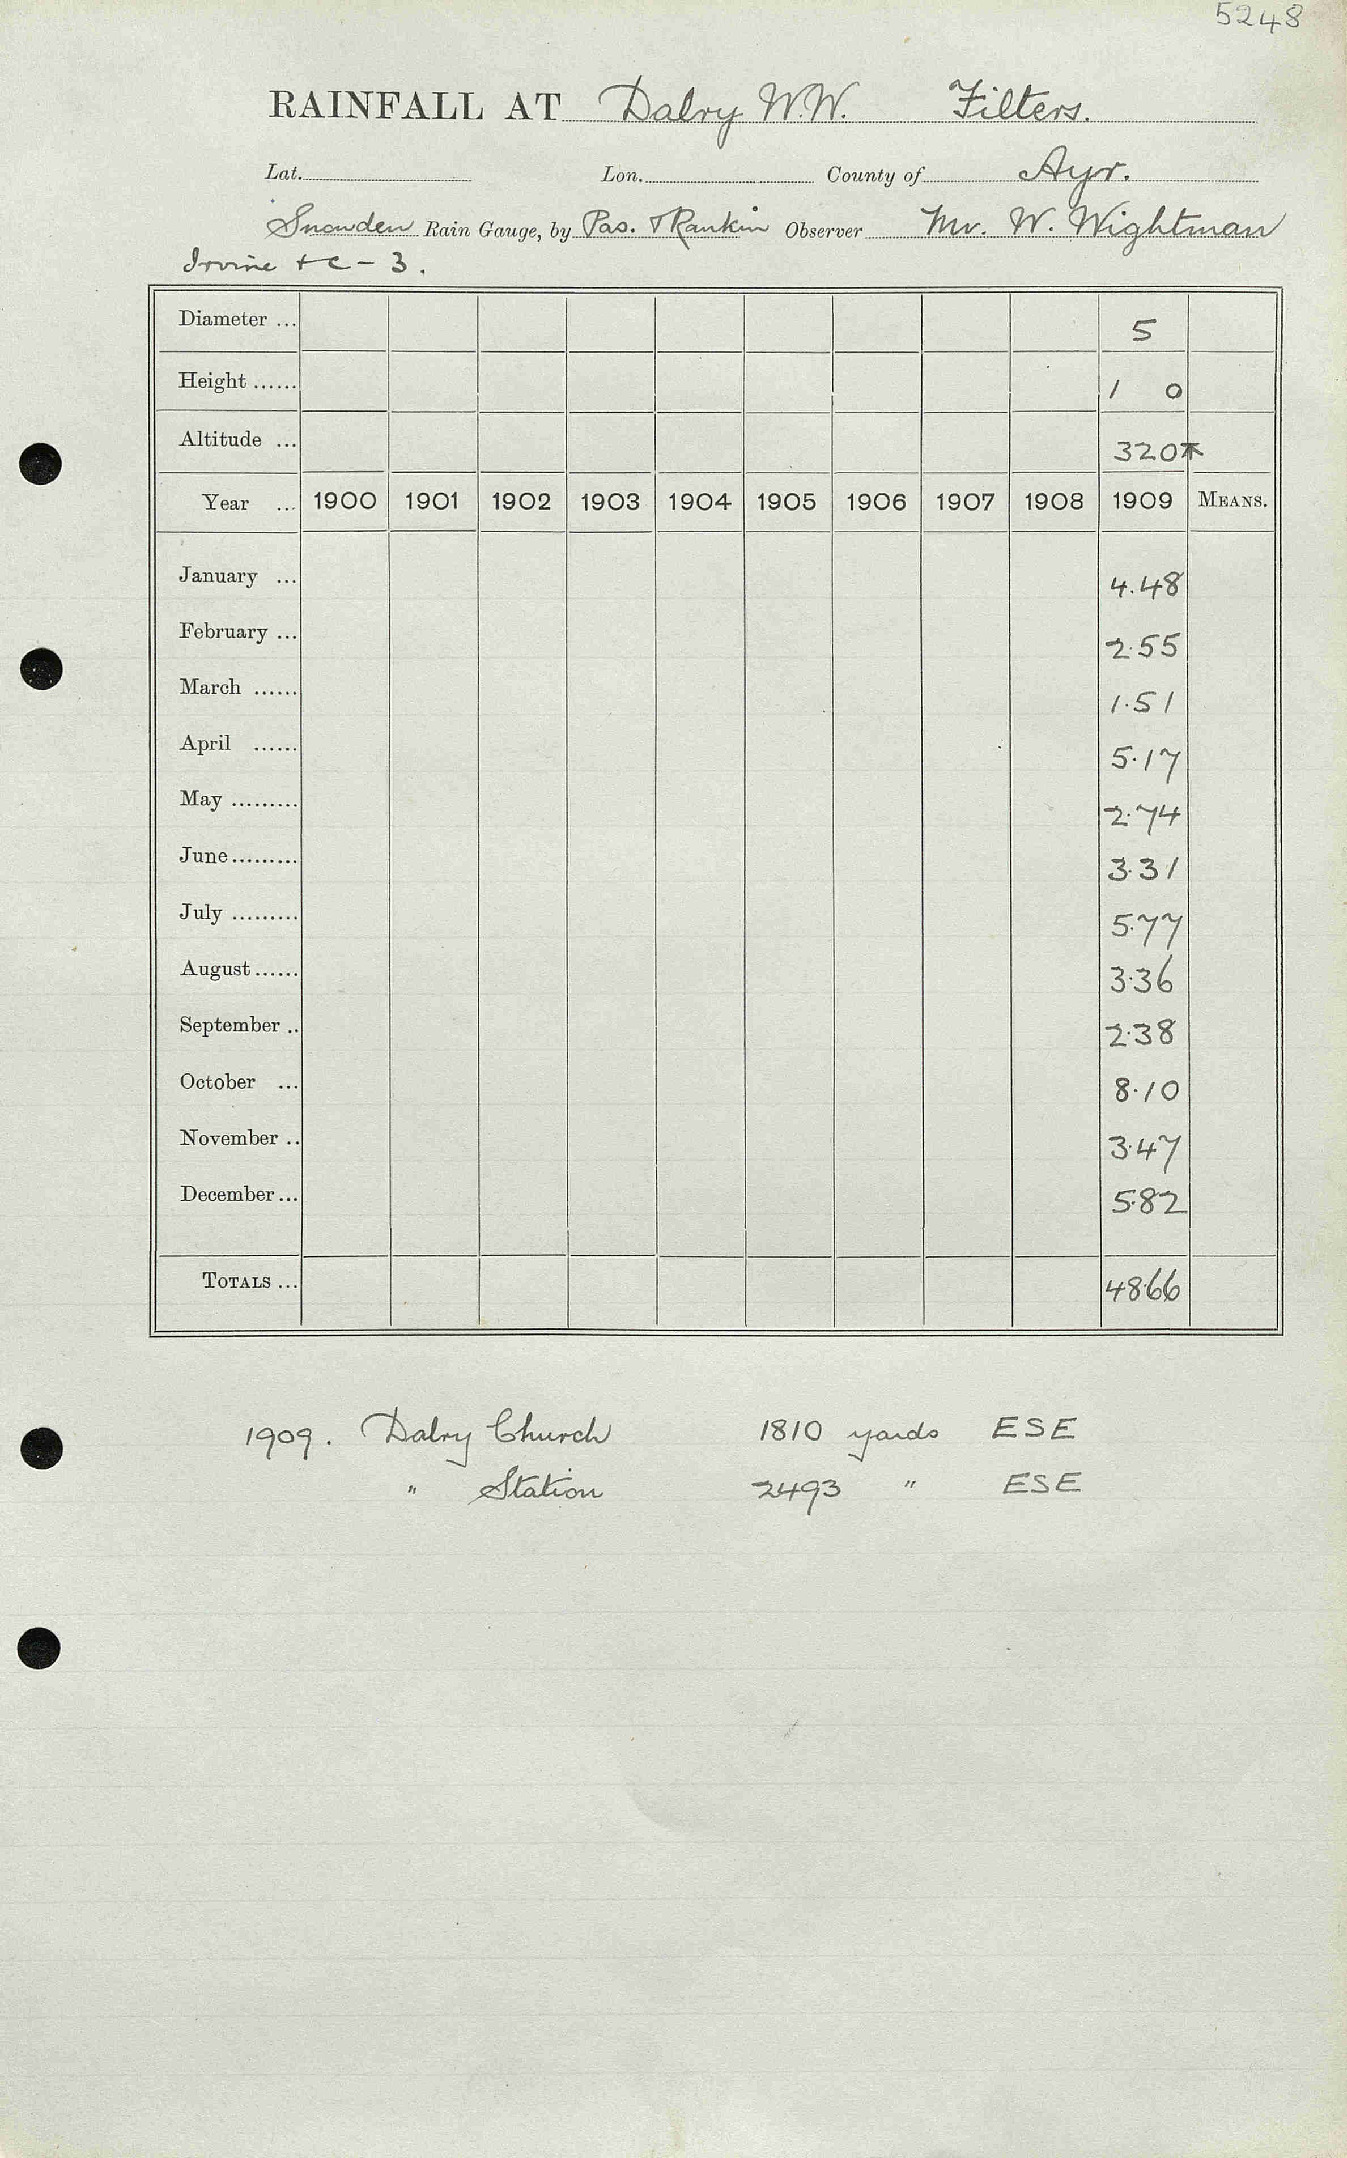 5248
RAINFALL AT Dalry W.W. Filters.
Lat. Lon. County of Ayr.
Snowden Rain Gauge, by Pas. & Rankin Observer Mr. W. Wightman
Irvine & C - 3.
Diameter ... 5
Height ...... 1 0
Altitude ... 320
Year ... 1900 1901 1902 1903 1904 1905 1906 1907 1908 1909 MEANS.
January ... 4.48
February ... 2.55
March ...... 1.51
April ...... 5.17
May ......... 2.74
June......... 3.31
July ......... 5.77
August...... 3.36
September .. 2.38
October ... 8.10
November .. 3.47
December... 5.82
TOTALS ... 48.66
1909. Dalry Church 1810 yards ESE
" Station 2493 " ESE